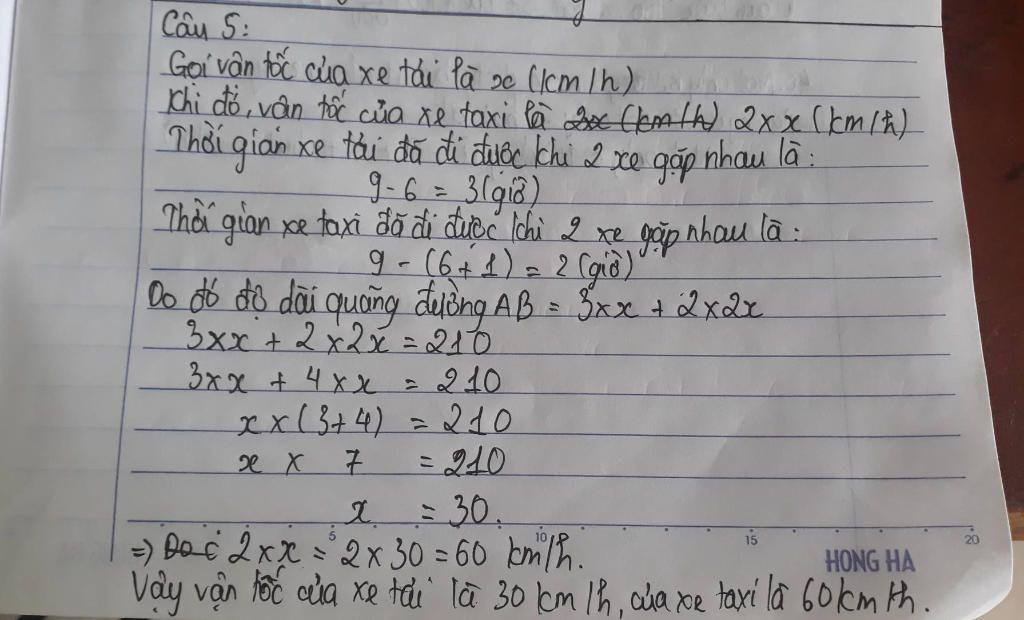 Câu 5:
Gọi vận tốc của xe tải là x (km/h)
Khi đó, vận tốc của xe taxi là 2x (km/h) 2 x x (km/h)
Thời gian xe tải đã đi được khi 2 xe gặp nhau là:
9 - 6 = 3 (giờ)
Thời gian xe taxi đã đi được khi 2 xe gặp nhau là:
9 - (6 + 1) = 2 (giờ)
Do đó độ dài quãng đường AB = 3 x x + 2 x 2x
3 x x + 2 x 2x = 210
3 x x + 4 x x = 210
x x (3 + 4) = 210
x x 7 = 210
x = 30.
5 10 15 20
=> Do 2 x x = 2 x 30 = 60 km/h.
HONG HA
Vậy vận tốc của xe tải là 30 km/h, của xe taxi là 60 km/h.